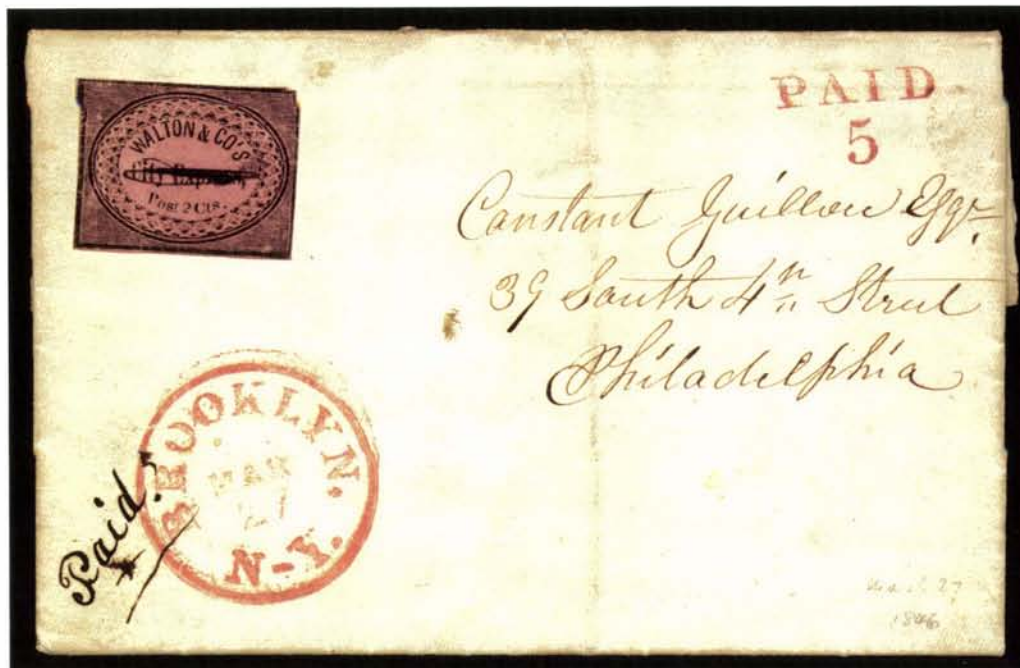 WALTON & CO'S
City Express,
Post 2 Cts.
PAID
5
Constant Guillou Esqr.
39 South 4th Street
Philadelphia
BROOKLYN.
MAR
27
N-Y.
Paid 5
March 27
1846